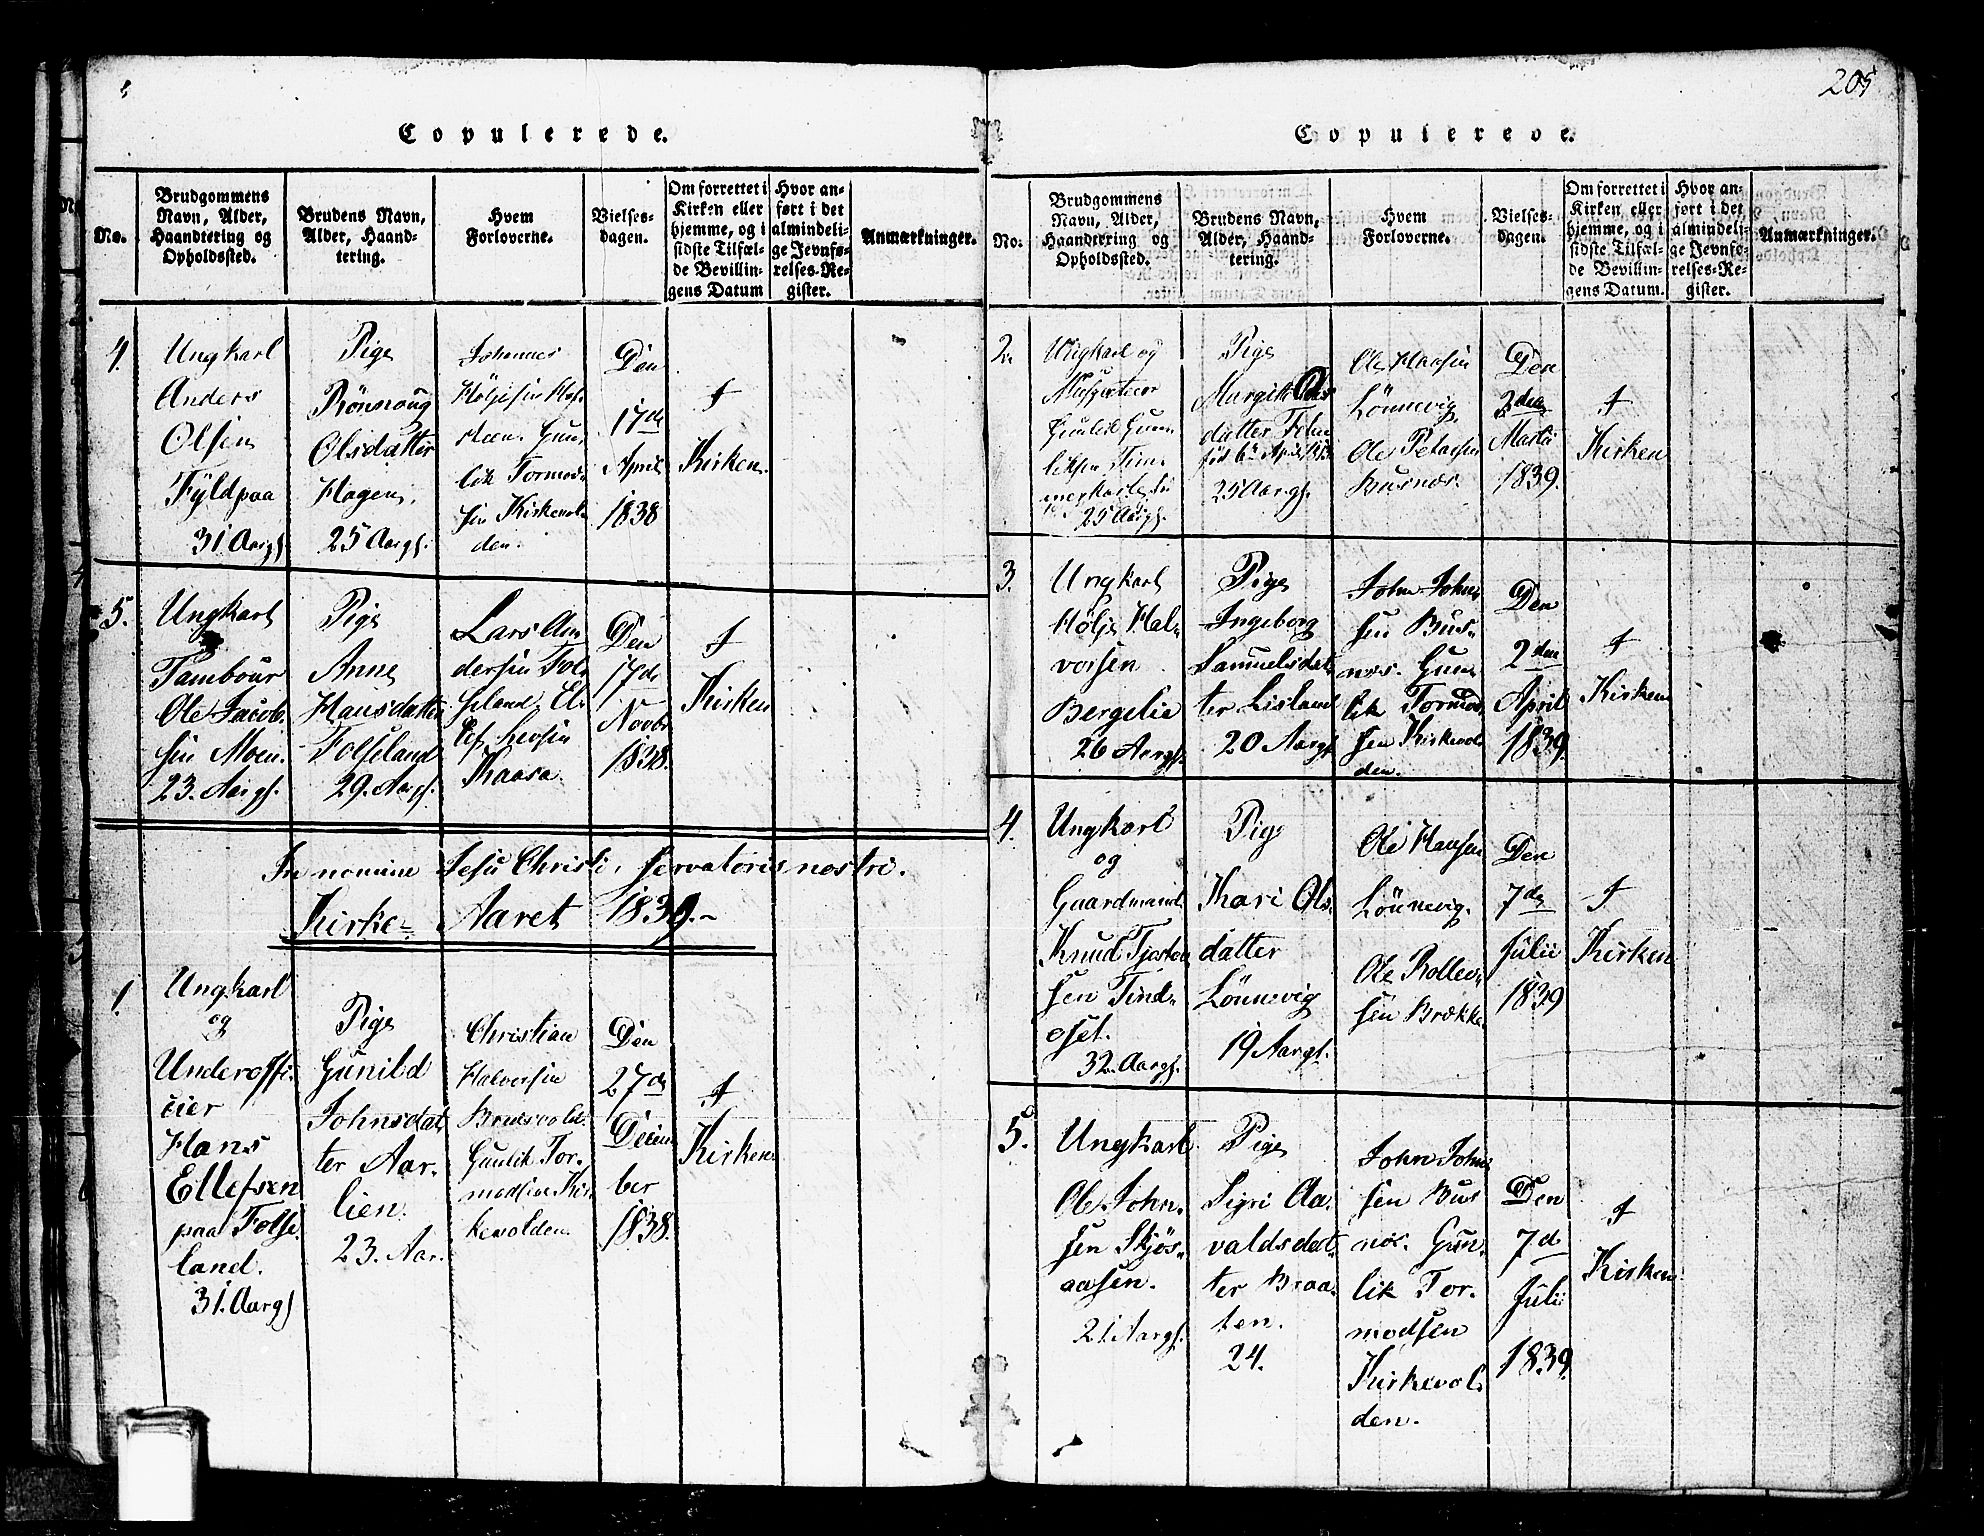 Copulerede.
No.
Brudgommens
Navn, Alder,
Haandtering og
Opholdssted.
Brudens Navn,
Alder, Haand-
tering.
Hvem
Forloverne.
Vielses-
dagen.
Om forrettet i
Kirken eller
hjemme, og i
sidste Tilfæl-
de Bevillin-
gens Datum
Hvor an-
ført i det
almindeli-
ge Jevnfø-
relses-Re-
gister.
Anmærkninger.
4.
Ungkarl
Anders
Olsen
Fyldpaa
31 Aargl.
Pige
Rönnoug
Olsdatter
Hagen.
25 Aargl.
Johannes
Höljesen
Gun-
lik Tormod-
sen Kirkevol-
den.
Den
17de
April
1838
I
Kirken.
5.
Ungkarl
Tambour
Ole Jacob-
sen Moen.
23. Aargl.
Pige
Anne
Hansdatter
Folseland
29. Aargl.
Lars An-
dersen Fol-
seland. El-
lef
Kaasa.
Den
17de
Novbr
1838.
I
Kirken
In nomine Jesu Christi, servatoris nostri.
Kirke-Aaret 1839.-
1.
Ungkarl
og
Underoffi-
cier
Hans
Ellefsen
paa Folse-
land.
31. Aargl
Pige
Gunild
Johnsdat-
ter Aar-
lien.
23. Aar.
Christian
Halvorsen
Brudsvold.
Gunlik Tor-
modsen Kir-
kevolden.
Den
27de
Decem-
ber
1838.
I
Kirken.
205
Copulerede.
No.
Brudgommens
Navn, Alder,
Haandtering og
Opholdssted.
Brudens Navn,
Alder, Haand-
tering.
Hvem
Forloverne.
Vielses-
dagen.
Om forrettet i
Kirken eller
hjemme, og i
sidste Tilfæl-
de Bevillin-
gens Datum.
Hvor an-
ført i det
almindeli-
ge Jevnfø-
relses-Re-
gister.
Anmærkninger.
2.
Ungkarl og
Gunlik Gun-
liksen Tim-
merkaas
25 Aargl.
Pige
Margit Ols-
datter
25 Aargl.
Ole Hansen
Lönnevig.
Ole
Busnes.
Den
2den
Martii
1839.
I
Kirken
3.
Ungkarl
Hölje Hal-
vorsen
Bergelie
26 Aargl.
Pige
Ingeborg
Samuelsdat-
ter Lisland
20 Aargl.
John John-
sen Bus-
nes. Gun-
lik Tormod-
sen Kirkevol-
den.
Den
2den
April
1839.
I
Kirken
4.
Ungkarl
og
Gaardmand
Knud
sen Tind-
oset.
32. Aargl.
Pige
Kari Ols-
datter
Lönnevig
19 Aargl.
Ole Hansen
Lönnevig.
Ole Rollev-
sen Brække.
Den
7de
Julii
1839
I
Kirken
5.
Ungkarl
Ole John-
sen Skjös-
aasen.
21 Aargl.
Pige
Sigri Aa-
valdsdat-
ter Braa-
ten.
24.
John John-
sen Bus-
nes. Gun-
lik Tor-
modsen
Kirkevol-
den.
Den
7de
Julii
1839.
I
Kirken